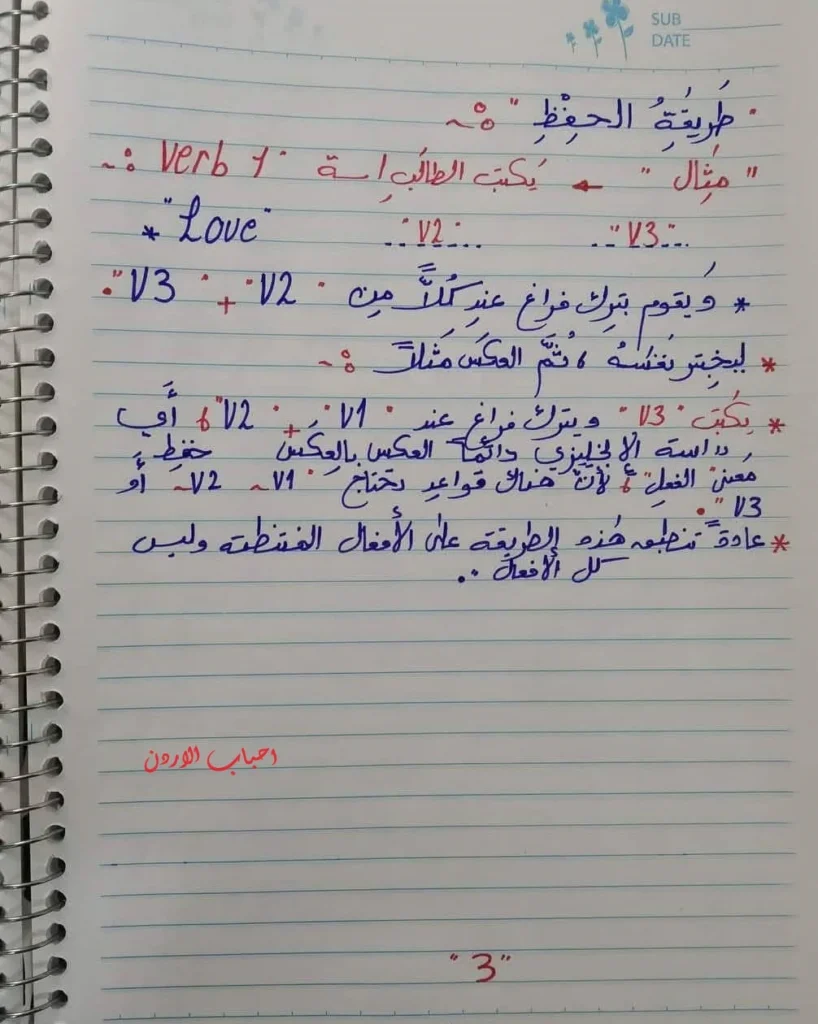 SUB
DATE
" طَرِيقَةُ الحِفْظِ " :~
" مِثَال " ← يَكتب الطالَبِ اسة " Verb 1 " :~
* "Love" .."V2".. .."V3"..
* وَيقوم بتِرك فراغ عندِ كُلاًّ مِن " V2 " + " V3 ".
* ليخِتبر نَفسَهُ ، ثُمَّ العكَس مَثلاً :~
* يكتب " V3 " ويترك فراغ عند " V1 " + " V2 " ، أَي
دراسة الإنجليزي دائماً العكس بالعِكَس حفظِ
معنى الفعلِ ، لأنَّ هناك قواعدِ تحتاج " V1 ~ V2 ~ أَو
V3 ".
* عادةً تنطبق هَذه الطريقة على الأفعال المنتظمة وليس
كل الأفعال ..
احباب الاردن
" 3 "